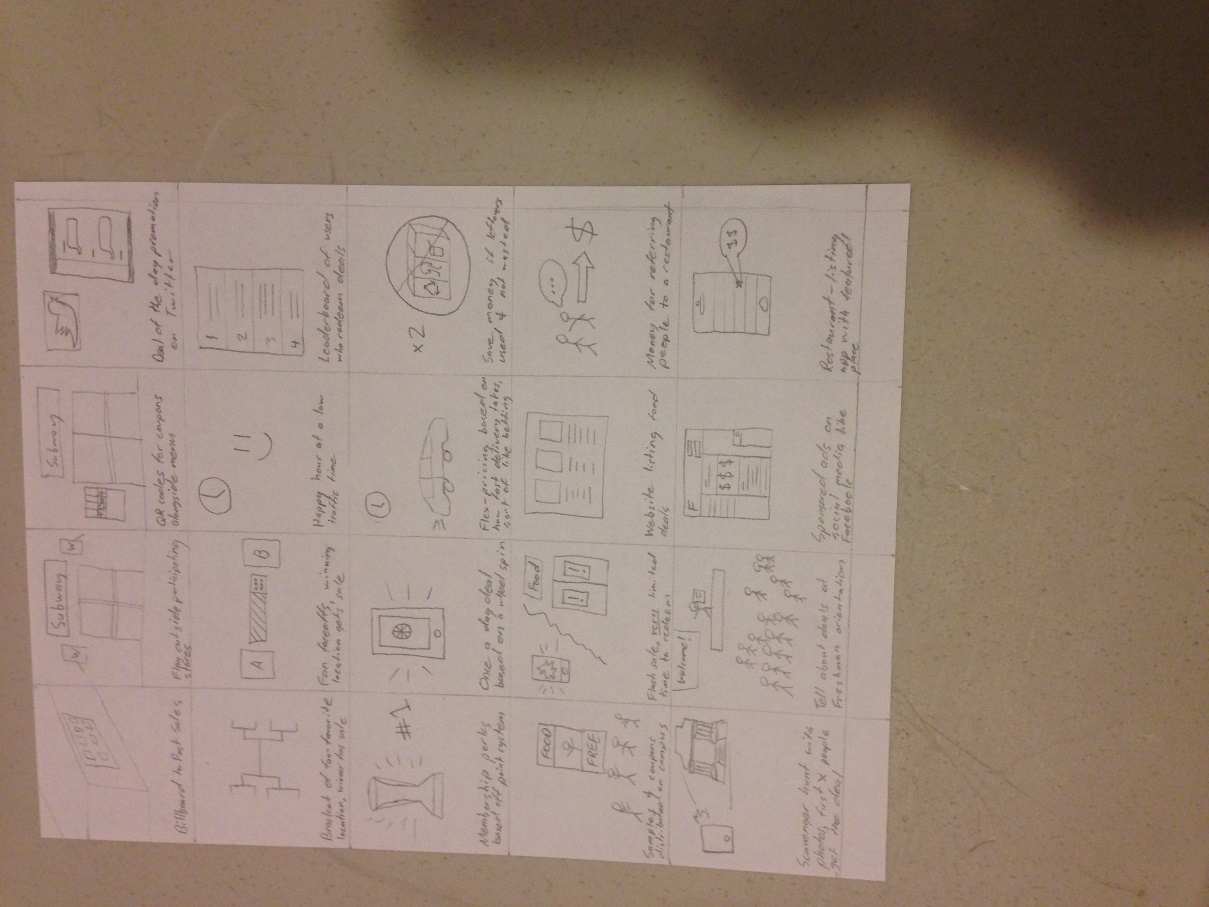 Billboard to Post Sales
Subway
W
W
Flag outside participating
stores
Subway
QR codes for coupons
alongside menu
Deal of the day promotion
on Twitter
Bracket of fan-favorite
location, winner has sale
A
B
Fan faceoffs, winning
location gets sale
Happy hour at a low
traffic time
1
2
3
4
Leaderboard of users
who redeem deals
#1
Membership perks
based off point system
Once a day deal
based on a wheel spin
Flex-pricing based on
how fast delivery takes,
sort of like betting
x2
Save money if leftovers
used & not wasted
FOOD
FREE
Samples & coupons
distributed on campus
Food
!
!
Flash sale, very limited
time to redeem
Website listing food
deals
...
$
Money for referring
people to a restaurant
Scavenger hunt with
photos, first X people
get the deal
Welcome!
Tell about deals at
Freshman orientation
F
$$$
Sponsored ads on
social media like
Facebook
$$
Restaurant-listing
app with featured
place